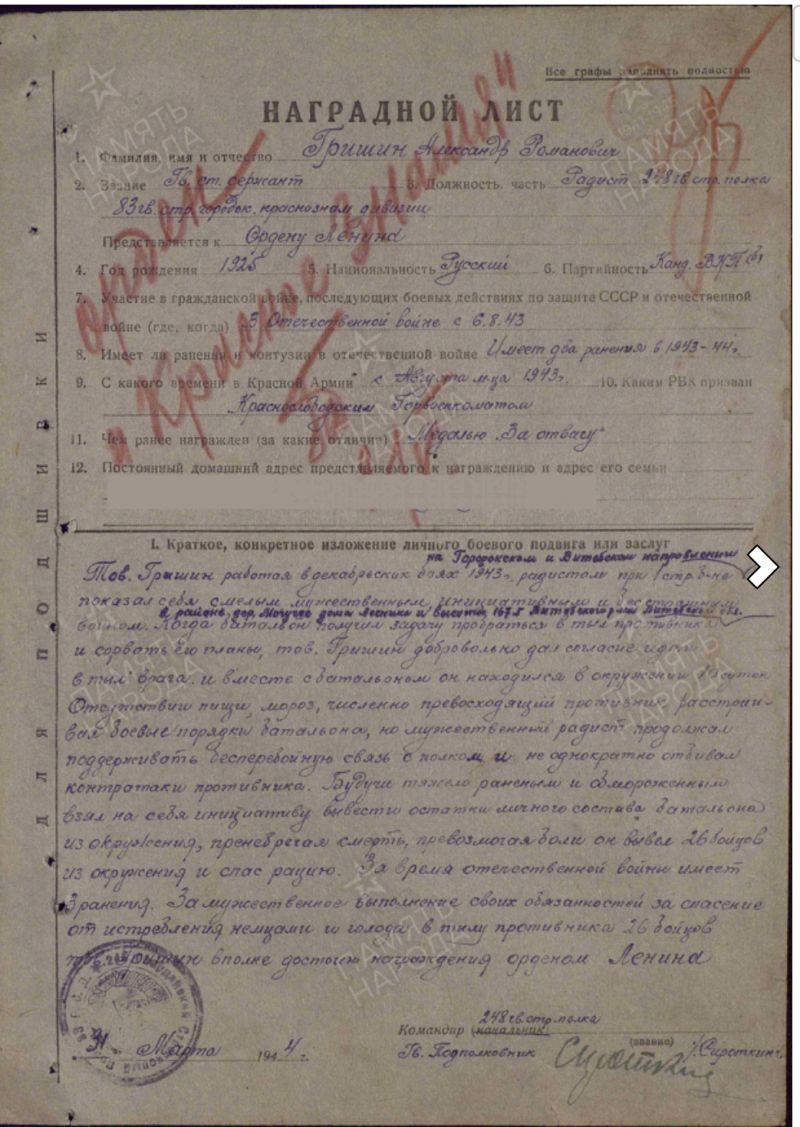 Все графы заполнять полностью
НАГРАДНОЙ ЛИСТ
1. Фамилия, имя и отчество Гришин Александр Романович
2. Звание Гв. ст. сержант 3. Должность, часть Радист 248 гв. стр. полка
83 гв. стр. городок. краснознам дивизии
Представляется к Ордену Ленина
4. Год рождения 1925 5. Национальность Русский 6. Партийность Канд. ВКП(б)
7. Участие в гражданской войне, последующих боевых действиях по защите СССР и отечественной
войне (где, когда) В Отечественной войне с 6.8.43
8. Имеет ли ранения и контузии в отечественной войне Имеет два ранения в 1943-44г.
9. С какого времени в Красной Армии с Августа м-ца 1943г. 10. Каким РВК призван
Краснослободским Горвоенкоматом
11. Чем ранее награжден (за какие отличия) Медалью "За отвагу"
12. Постоянный домашний адрес представляемого к награждению и адрес его семьи
орден
"Красное Знамя"
ДЛЯ ПОДШИВКИ
I. Краткое, конкретное изложение личного боевого подвига или заслуг
на Городокском и Витебском направлении
Тов. Гришин работая в декабрьских боях 1943г. радистом при 1 стр. б-не
показал себя смелым мужественным инициативным и бесстрашным
в районе дер. Могучее дома Лесника и высоты 167.5 Витебского р-на Витебской обл.
воином. Когда батальон получил задачу пробраться в тыл противника
и сорвать его планы, тов. Гришин добровольно дал согласие идти
в тыл врага. и вместе с батальоном он находился в окружении суток
Отсутствии пищи, мороз, численно превосходящий противник расстраи-
вал боевые порядки батальона, но мужественный радист продолжал
поддерживать бесперебойную связь с полком и не однократно отбивал
контратаки противника. Будучи тяжело раненым и обмороженным
взял на себя инициативу вывести остатки личного состава батальона
из окружения, пренебрегая смерть, превозмогая боли он вывел 26 бойцов
из окружения и спас рацию. За время отечественной войны имеет
3 ранения. За мужественное выполнение своих обязанностей за спасение
от истребления немцами и голода в тылу противника 26 бойцов
тов. Гришин вполне достоин награждения орденом Ленина
248 гв. стр. полка
Командир (начальник)
(звание)
Гв. Подполковник /Сироткин/
31 Марта 1944 г.
ПАМЯТЬ НАРОДА